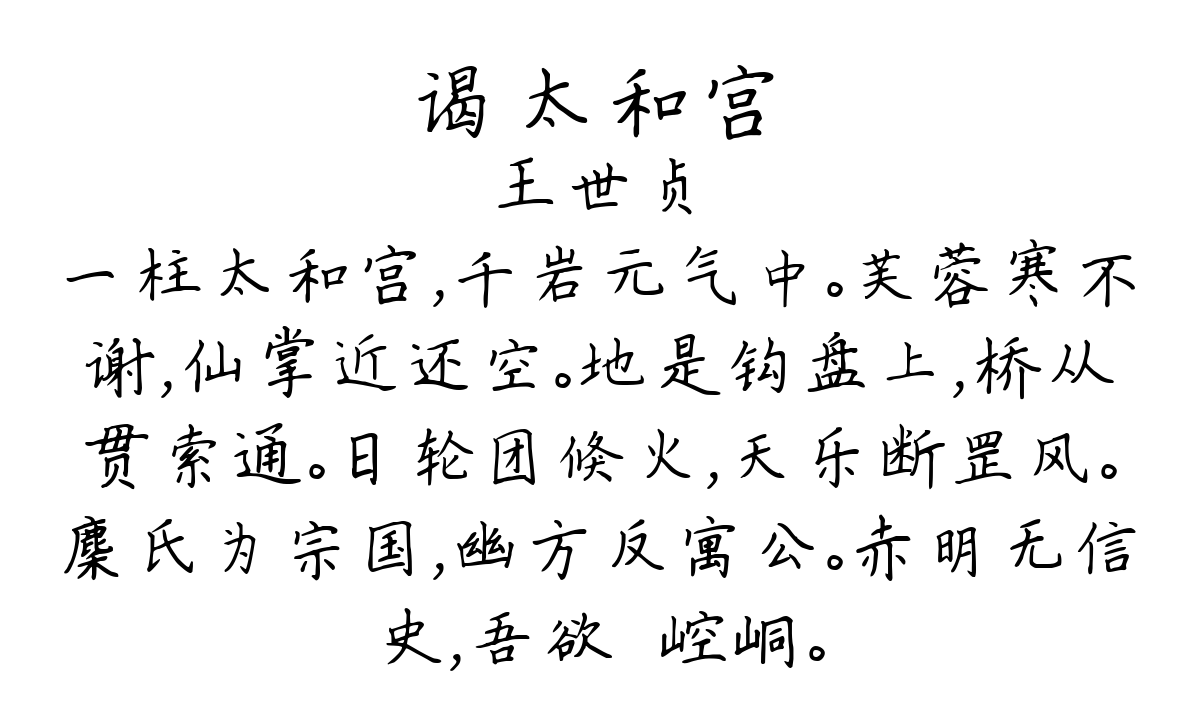 谒太和宫
王世贞
一柱太和宫,千岩元气中。芙蓉寒不
谢,仙掌近还空。地是钩盘上,桥从
贯索通。日轮团倏火,天乐断罡风。
麇氏为宗国,幽方反寓公。赤明无信
史,吾欲 崆峒。